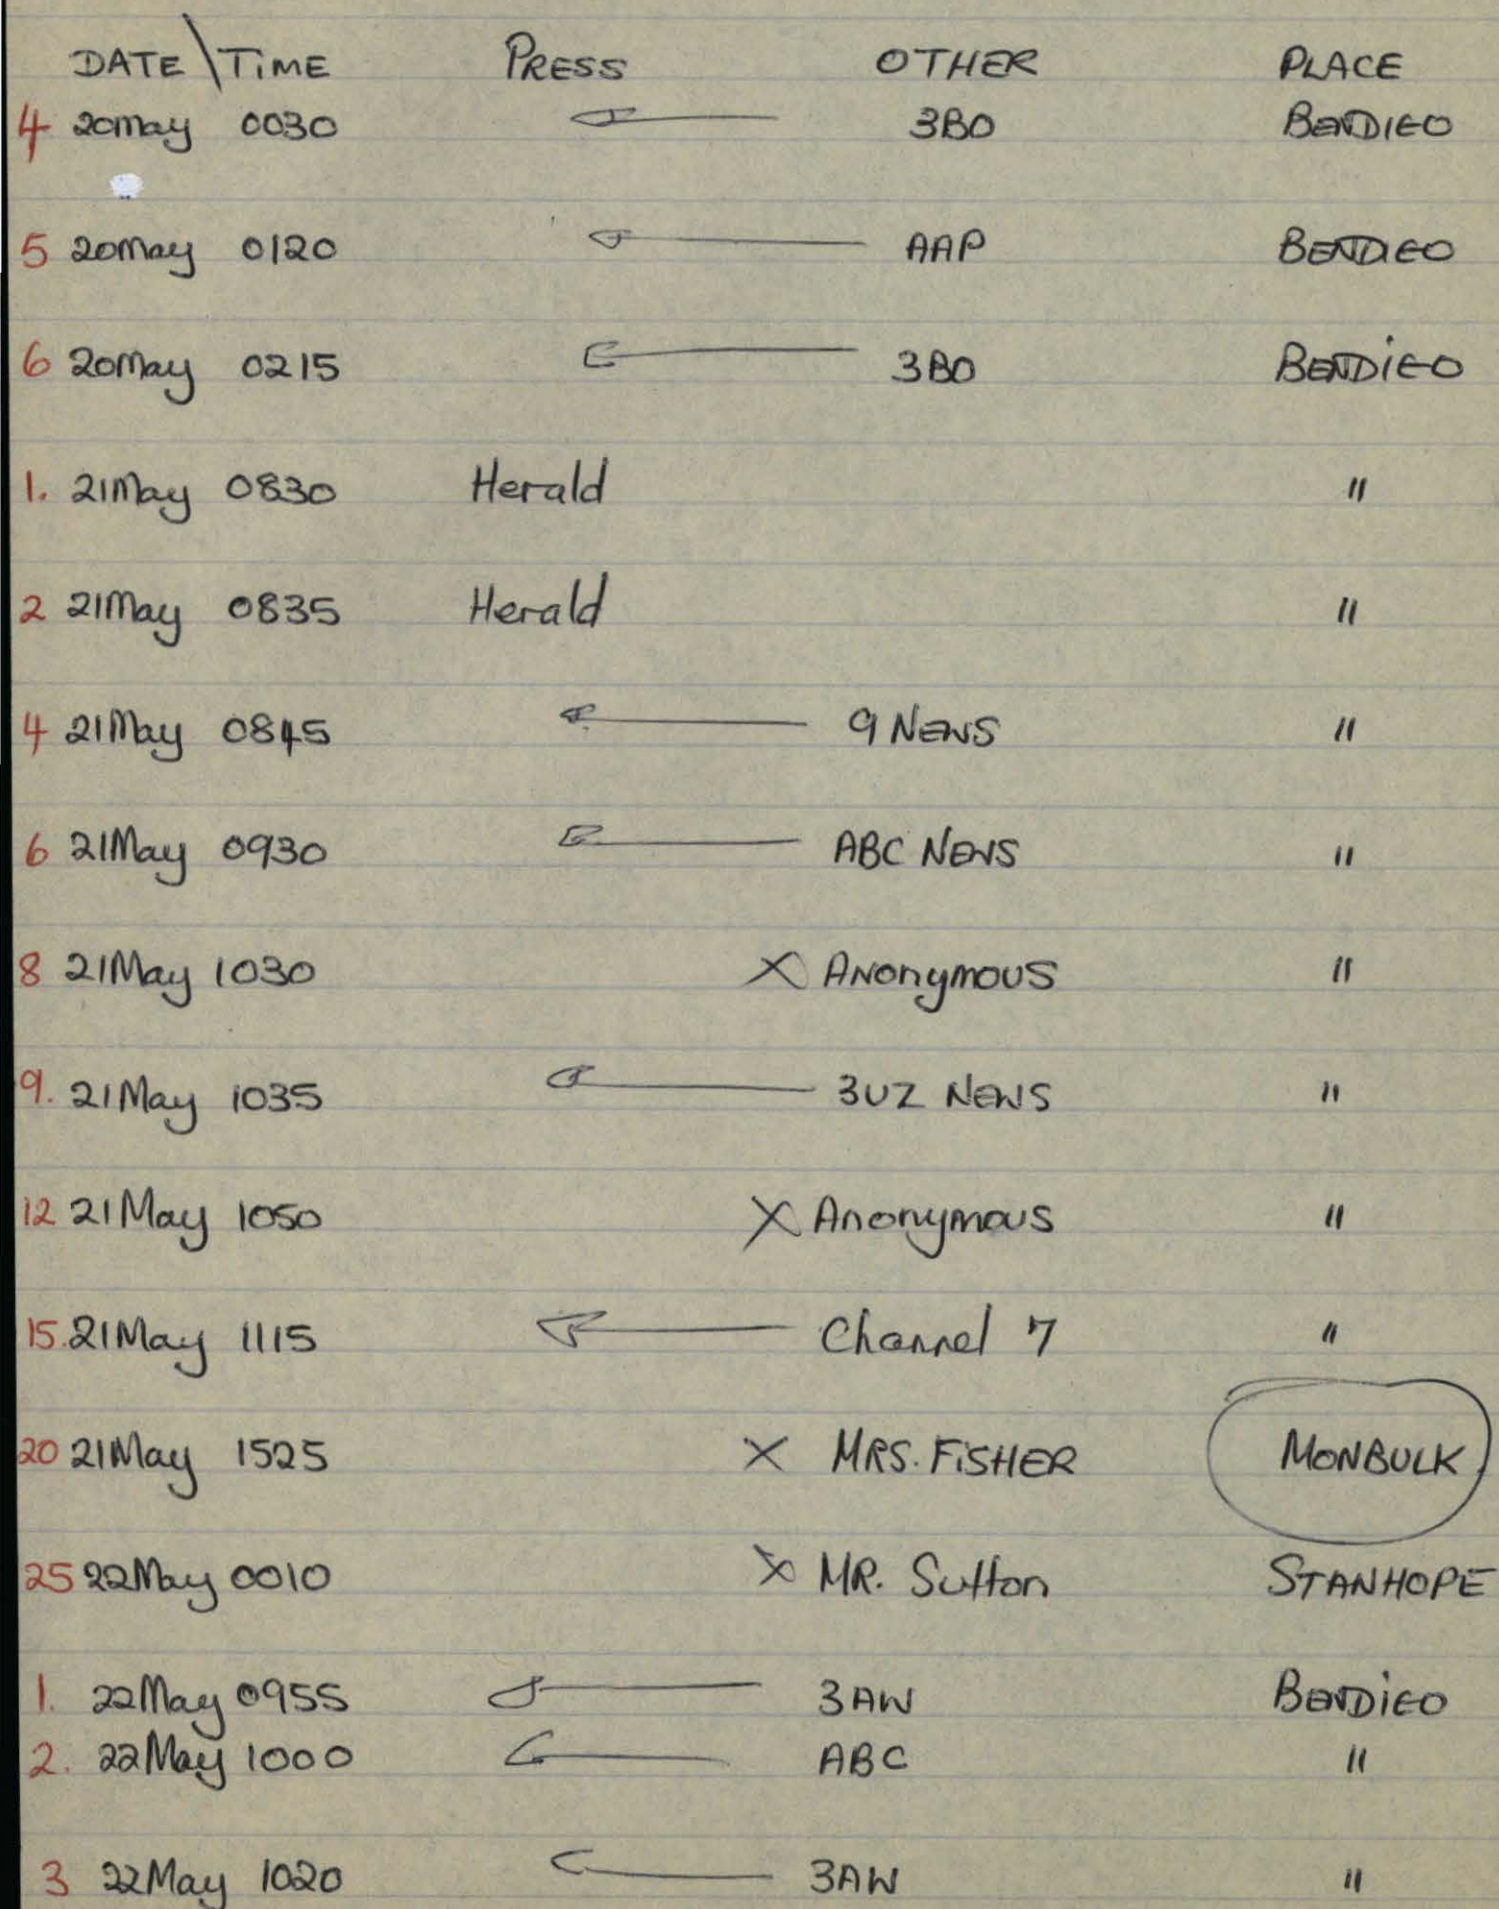 DATE \ TIME PRESS OTHER PLACE
4 20 May 0030 3BO BENDIGO
5 20 May 0120 AAP BENDIGO
6 20 May 0215 3BO BENDIGO
1. 21 May 0830 Herald "
2 21 May 0835 Herald "
4 21 May 0845 9 NEWS "
6 21 May 0930 ABC NEWS "
8 21 May 1030 X ANonymous "
9. 21 May 1035 3UZ NEWS "
12 21 May 1050 X Anonymous "
15. 21 May 1115 Channel 7 "
20 21 May 1525 X MRS. FiSHER MONBULK
25 22 May 0010 X MR. Sutton STANHOPE
1. 22 May 0955 3AW BENDiGO
2. 22 May 1000 ABC "
3 22 May 1020 3AW "